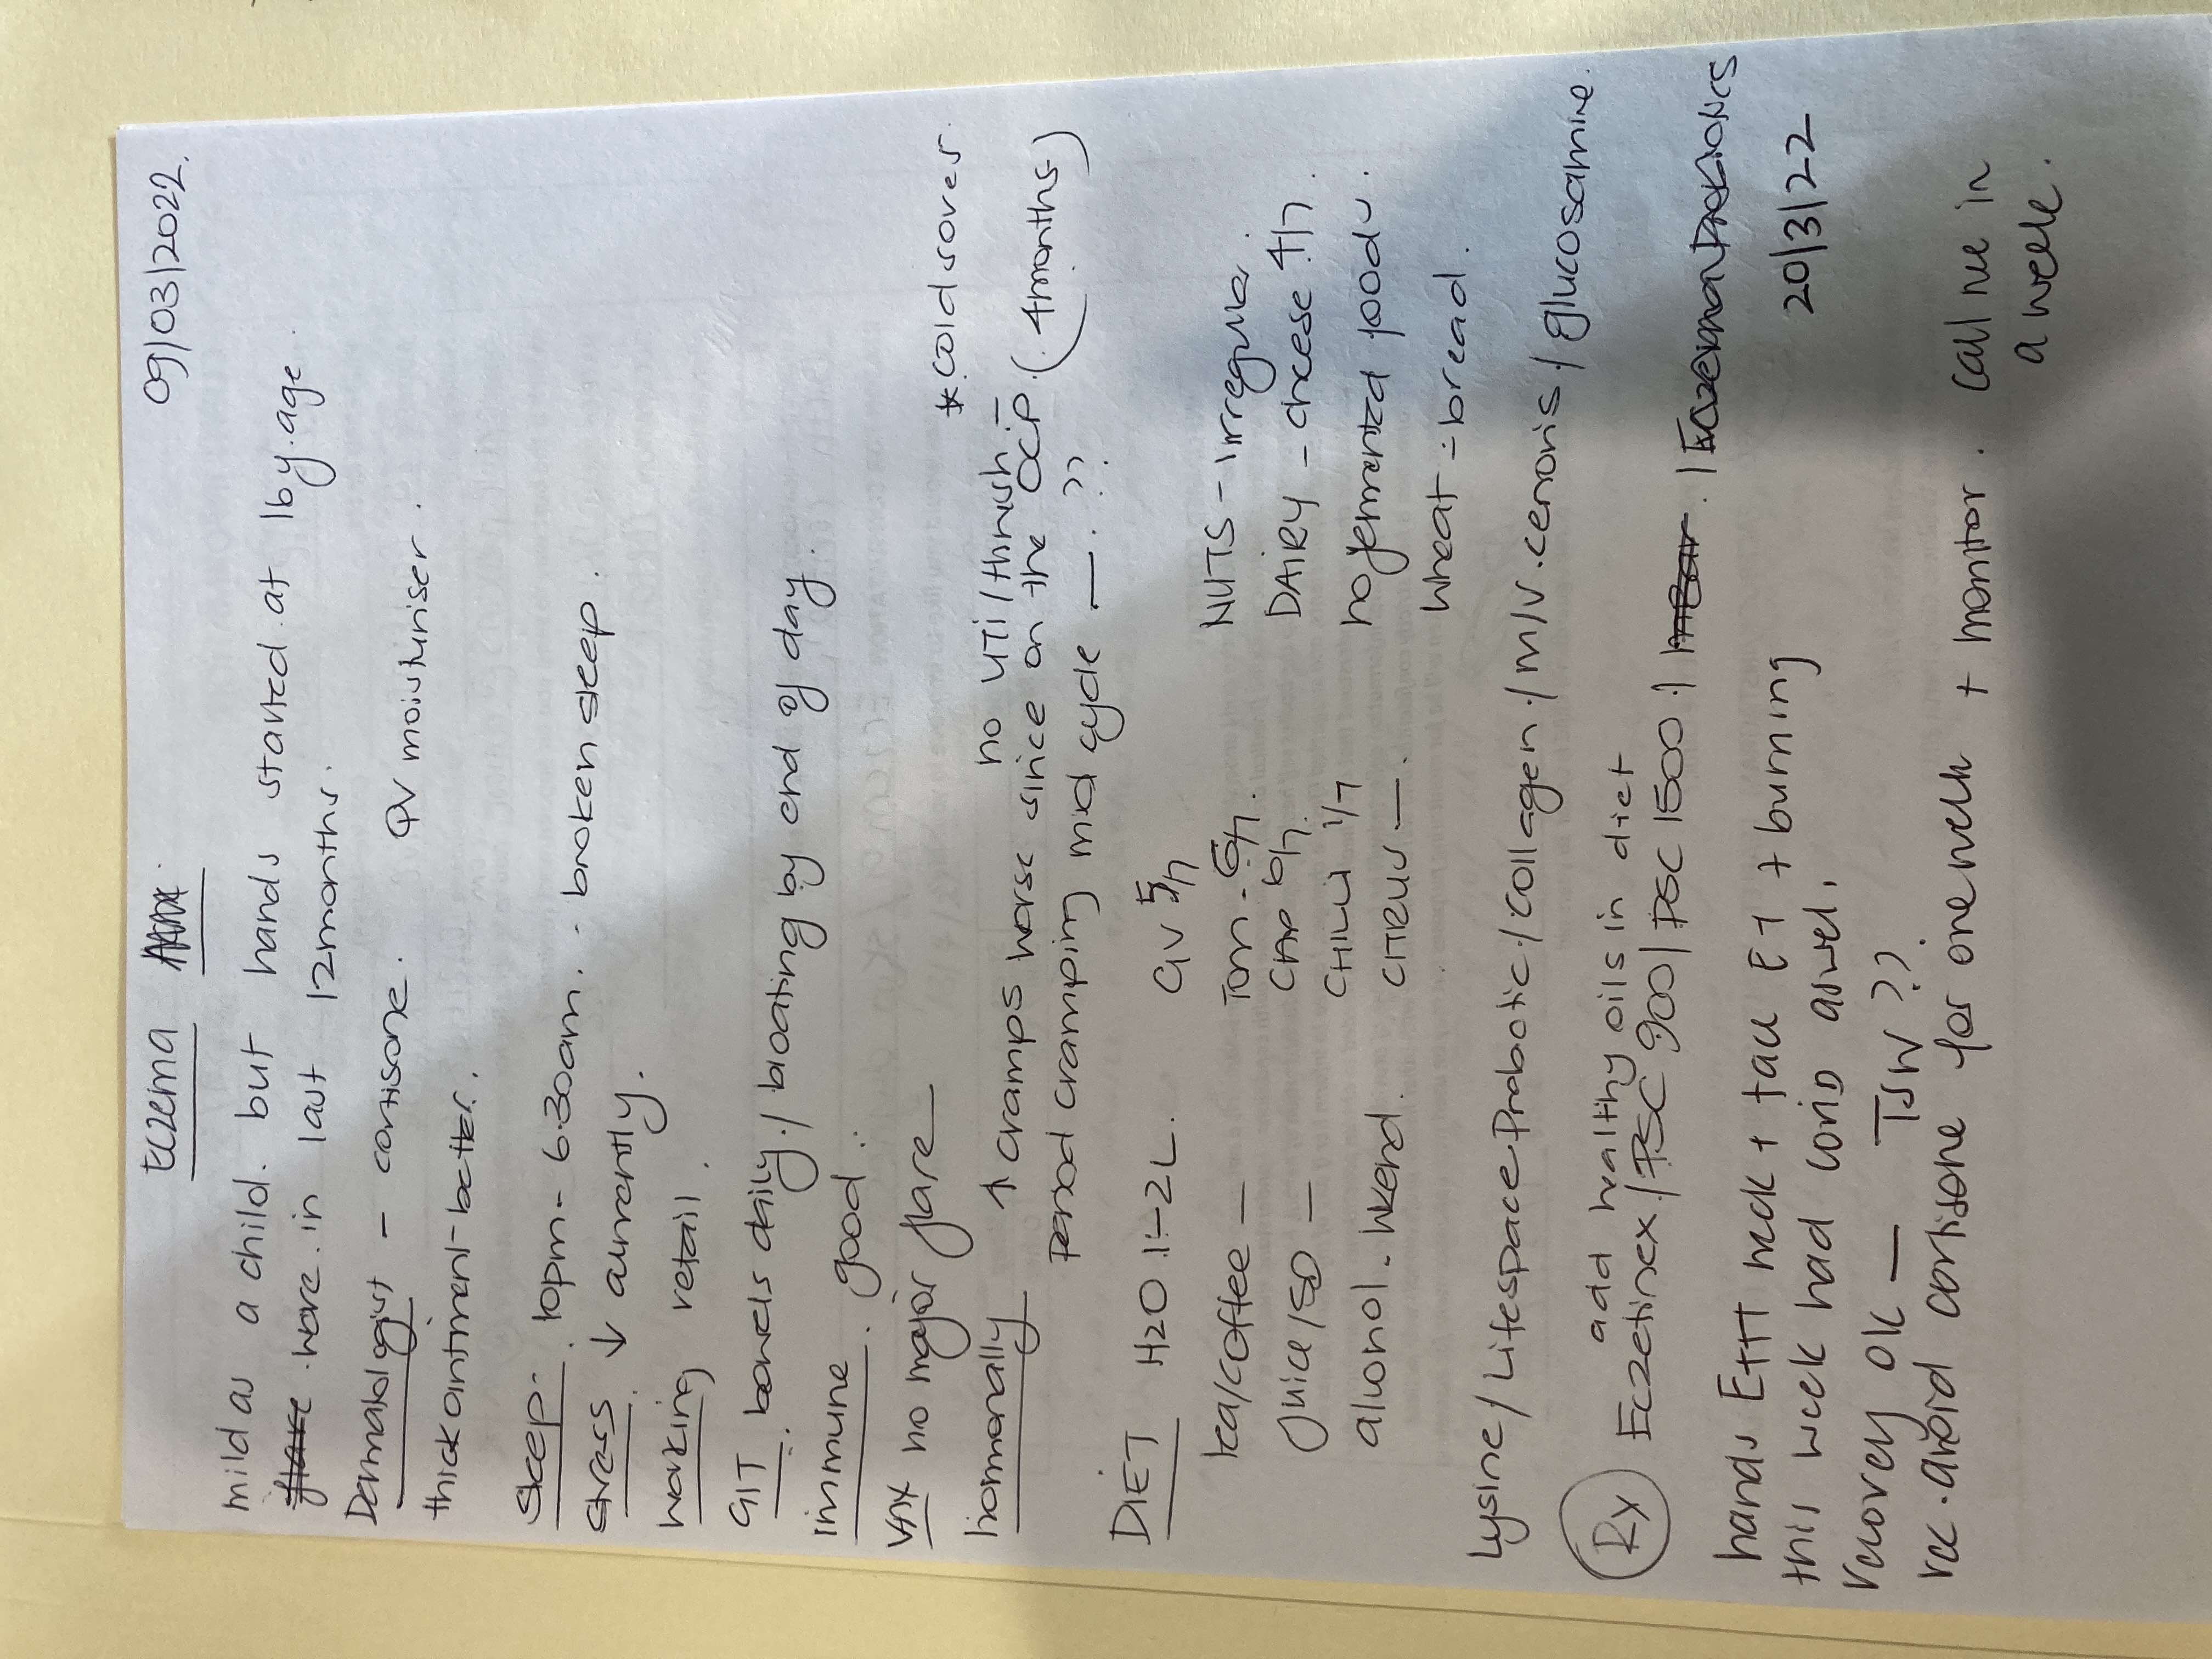 09/03/2022.
Eczema
mild as a child. but hands started at 16y.age.
flare worse in last 12months.
Dermatologist - cortisone. QV moisturiser.
thick ointment - better.
Sleep. 10pm - 6.30am. - broken sleep.
Stress ↓ currently.
working retail.
GIT. bowels daily. / bloating by end of day.
immune. good. *cold sores.
VAX no major flare — no UTI / thrush —
hormonally ↑ cramps worse since on the OCP. (4months)
Period cramping mid cycle —. ??
DIET H2O 1-2L. GV 5/7 NUTS - irregular.
tea/coffee — Tom - 6/7. DAIRY - cheese 4/7.
CAP 6/7.
juice/SD — CHILLI 1/7 no fermented foods.
alcohol - wkend. CITRUS —. wheat = bread.
Lysine / Lifespace Probiotic / collagen / m/v. / glucosamine.
add healthy oils in diet
Rx Eczetinex / PSC 900 / PSC 1500 / Eczema Probiotics
hands E+++ neck + face E+ + burning 20/3/22
this week had covid aswel.
recovery OK — TSW??
rec. avoid cortisone for one week + monitor. call me in
a week.